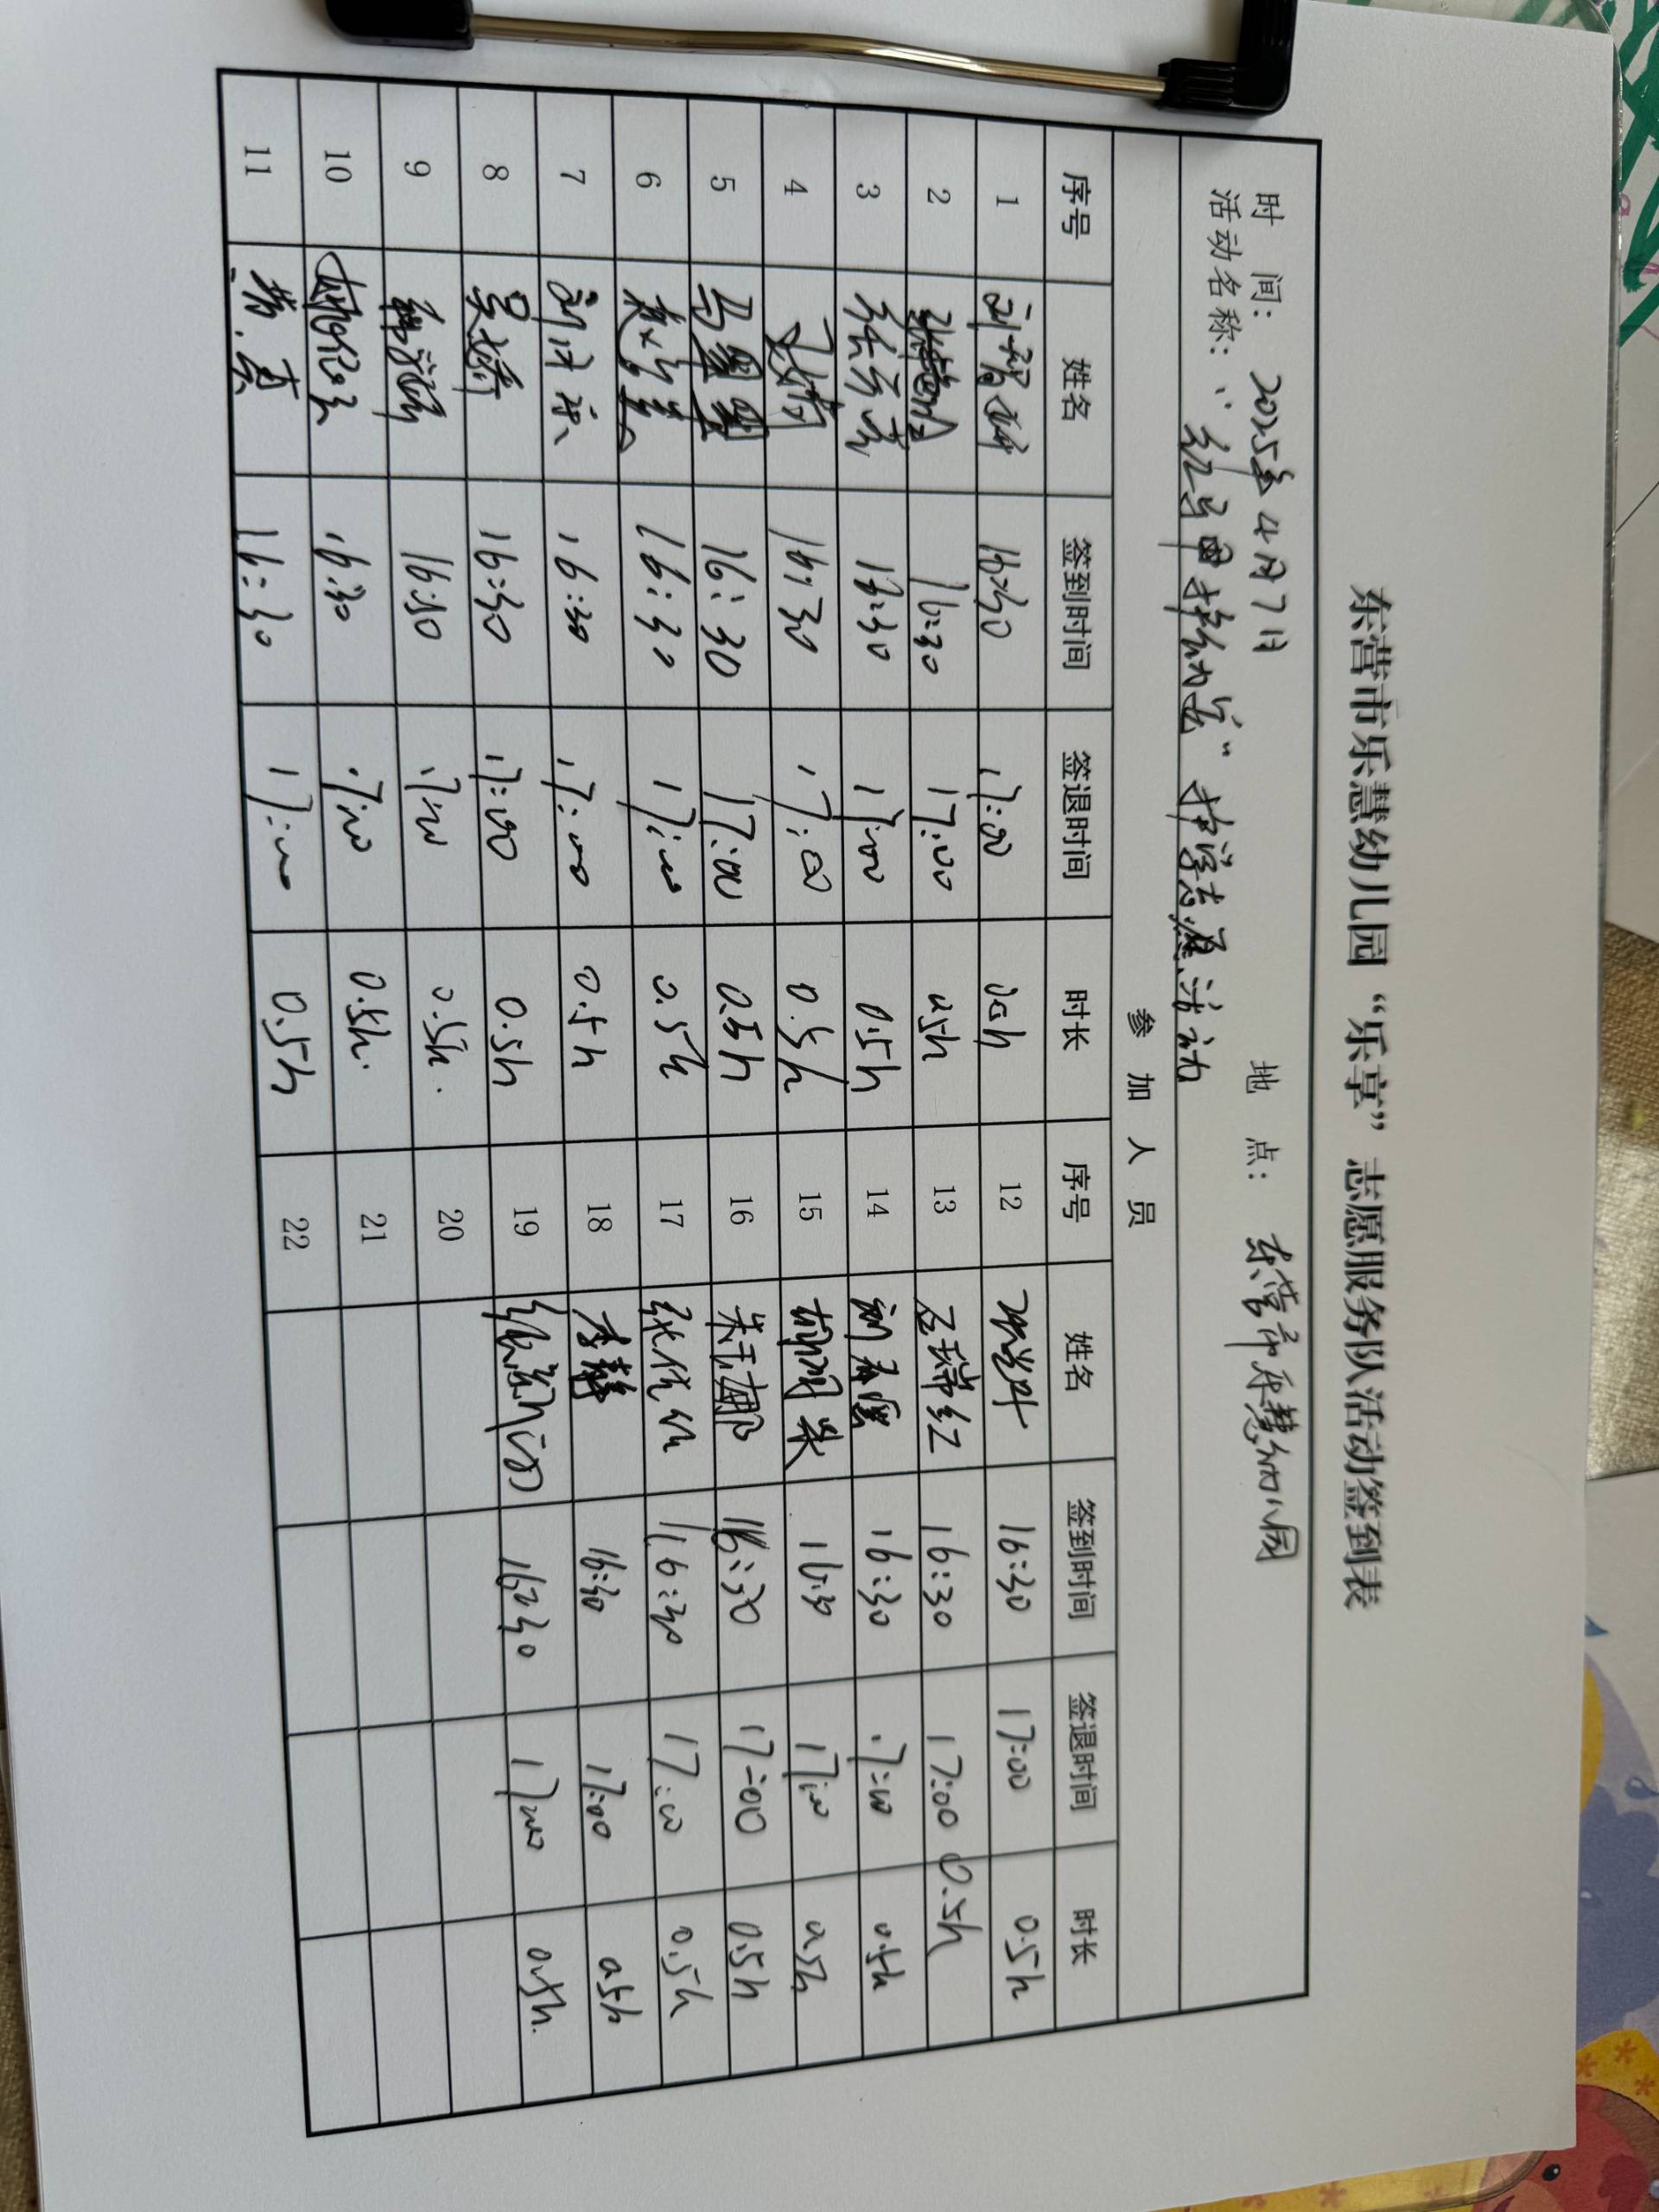 东营市乐慧幼儿园“乐享”志愿服务队活动签到表
时 间： 2025年4月7日 地 点： 东营市乐慧幼儿园
活动名称：“红马甲护幼苗”护学志愿活动
参 加 人 员
序号 姓名 签到时间 签退时间 时长 序号 姓名 签到时间 签退时间 时长
1 16:30 17:00 0.5h 12 16:30 17:00 0.5h
2 16:30 17:00 0.5h 13 王瑞红 16:30 17:00 0.5h
3 16:30 17:00 0.5h 14 16:30 17:00 0.5h
4 王倩 16:30 17:00 0.5h 15 16:30 17:00 0.5h
5 马盟盟 16:30 17:00 0.5h 16 朱元娜 16:30 17:00 0.5h
6 16:30 17:00 0.5h 17 16:30 17:00 0.5h
7 16:30 17:00 0.5h 18 李静 16:30 17:00 0.5h
8 吴娇 16:30 17:00 0.5h 19 16:30 17:00 0.5h.
9 16:30 17:00 0.5h. 20
10 16:30 17:00 0.5h. 21
11 16:30 17:00 0.5h 22